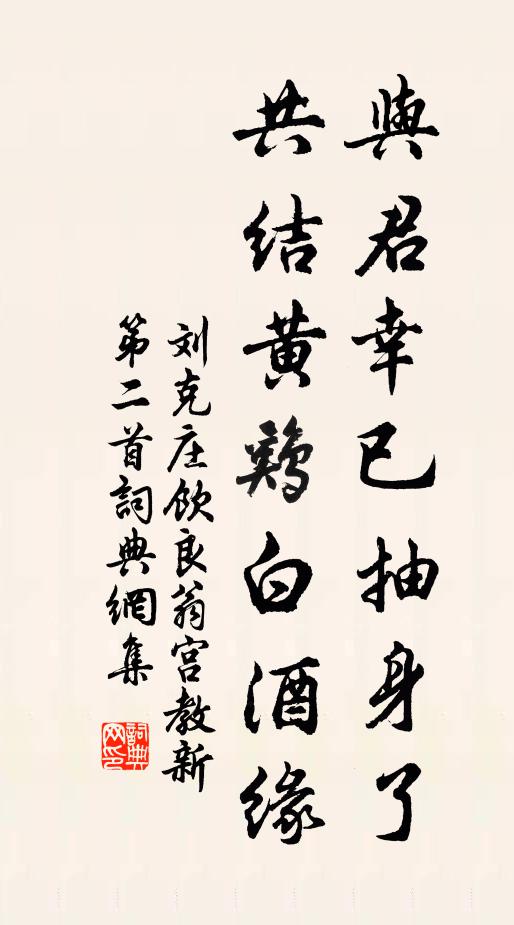 與君幸已抽身了
共结黄鷄白酒缘
刘克庄飲良翁宫教新
第二首詞典網集
詞典网印